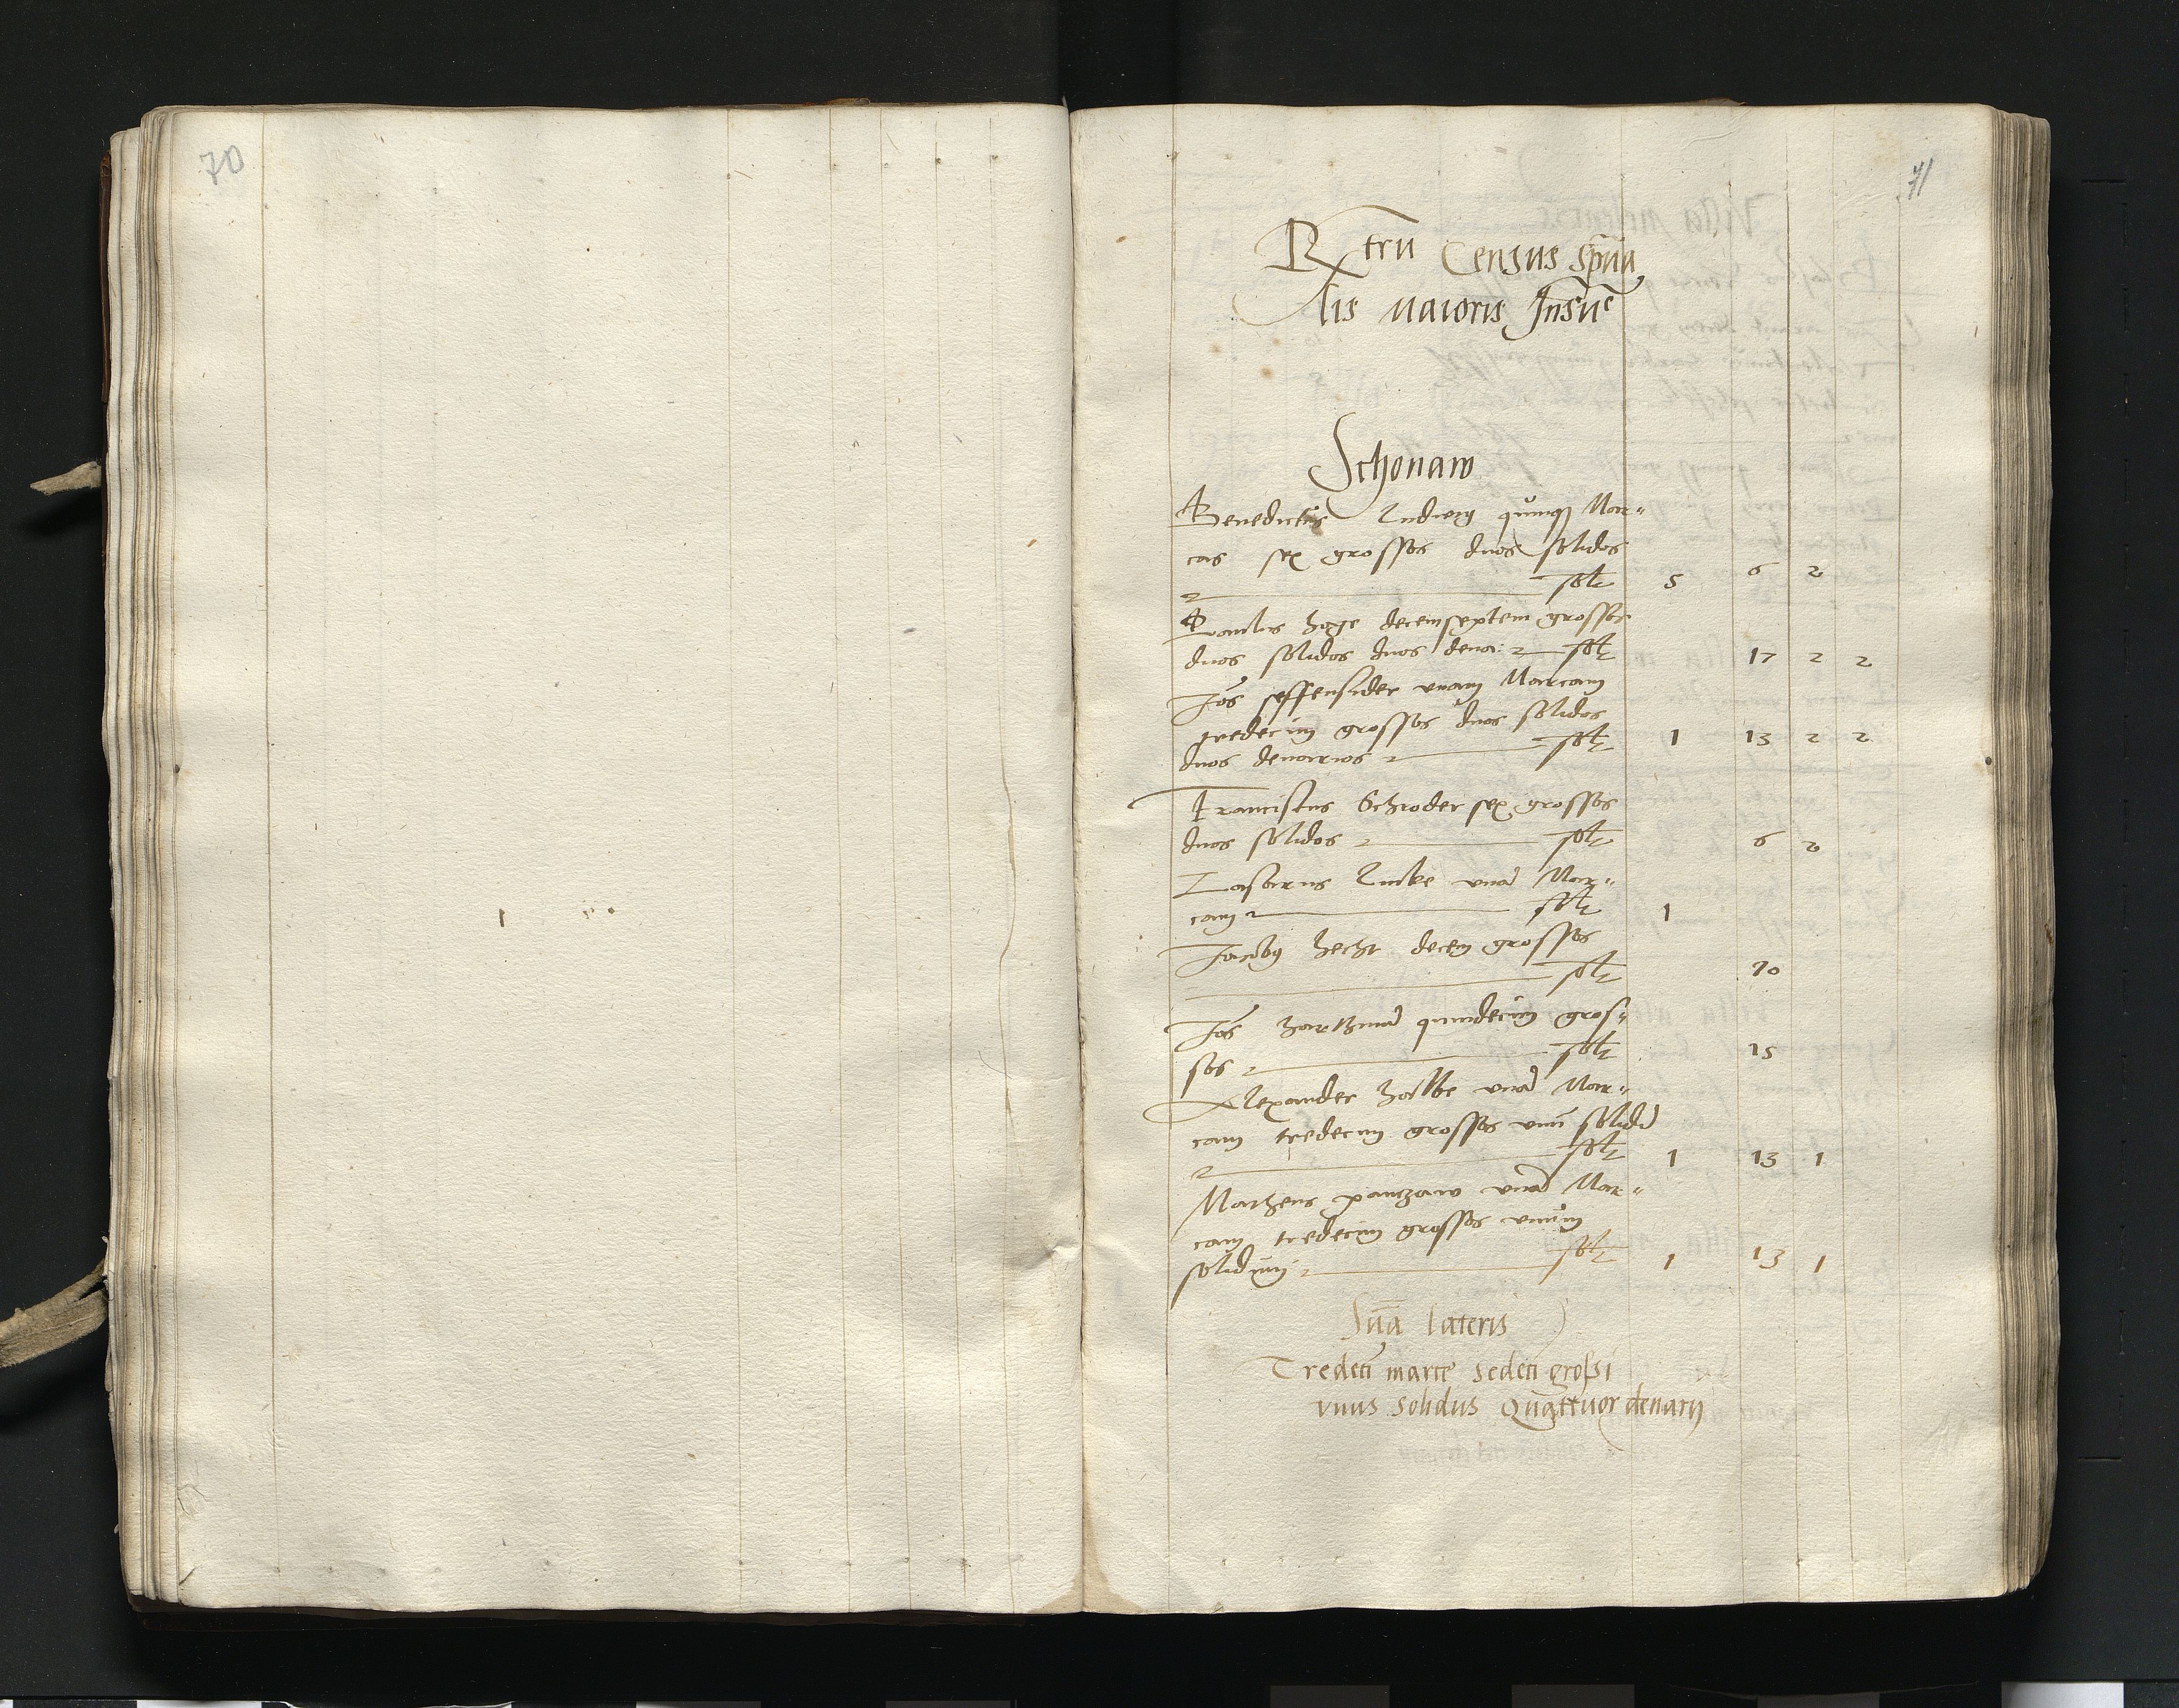 70
71
Rtrū Census spūa
lis maioris Insūe
Schonaw
Benedictus Ludwig quinqȝ Mar„
cas sex grossos duos solidos
solt 5 6 2
Paulus hoge decemseptem grossos
duos solidos duos dena: solt 17 2 2
Jos seffensider vnam Marcam
tredecim grossos duos solidos
duos denarios solt 1 13 2 2
Franciscus Schroder sex grossos
duos solidos solt 6 2
Lasarus Lucke vnā Mar„
cam solt 1
Jacobꝰ hecht decem grossos
solt 10
Jos hartzman quindecim gros„
sos solt 15
Alexander halbe vnā Mar„
cam tredecim grossos vnū solidū
solt 1 13 1
Matheus panczaw vnā Mar„
cam tredecim grossos vnum
solidum solt 1 13 1
Sūa lateris
Tredeci marce sedeci grossi
vnus solidus Quattuor denarij